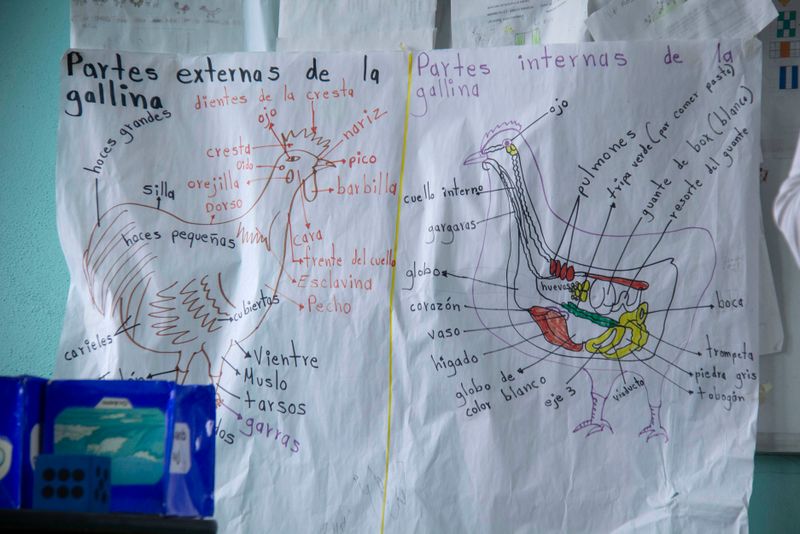 Partes externas de la
gallina
dientes de la cresta
ojo
nariz
hoces grandes
cresta
oido
pico
orejilla
barbilla
silla
Dorso
hoces pequeñas
cara
frente del cuello
Esclavina
Pecho
cubiertas
carieles
Vientre
Muslo
tarsos
garras
Partes internas de la
gallina
ojo
pulmones
tripa verde (por comer pasto)
guante de box (blanco)
resorte del guante
cuello interno
gargaras
globo
huevos
corazón
boca
vaso
higado
trompeta
piedra gris
tobogán
globo de
color blanco
eje 3
viaducto